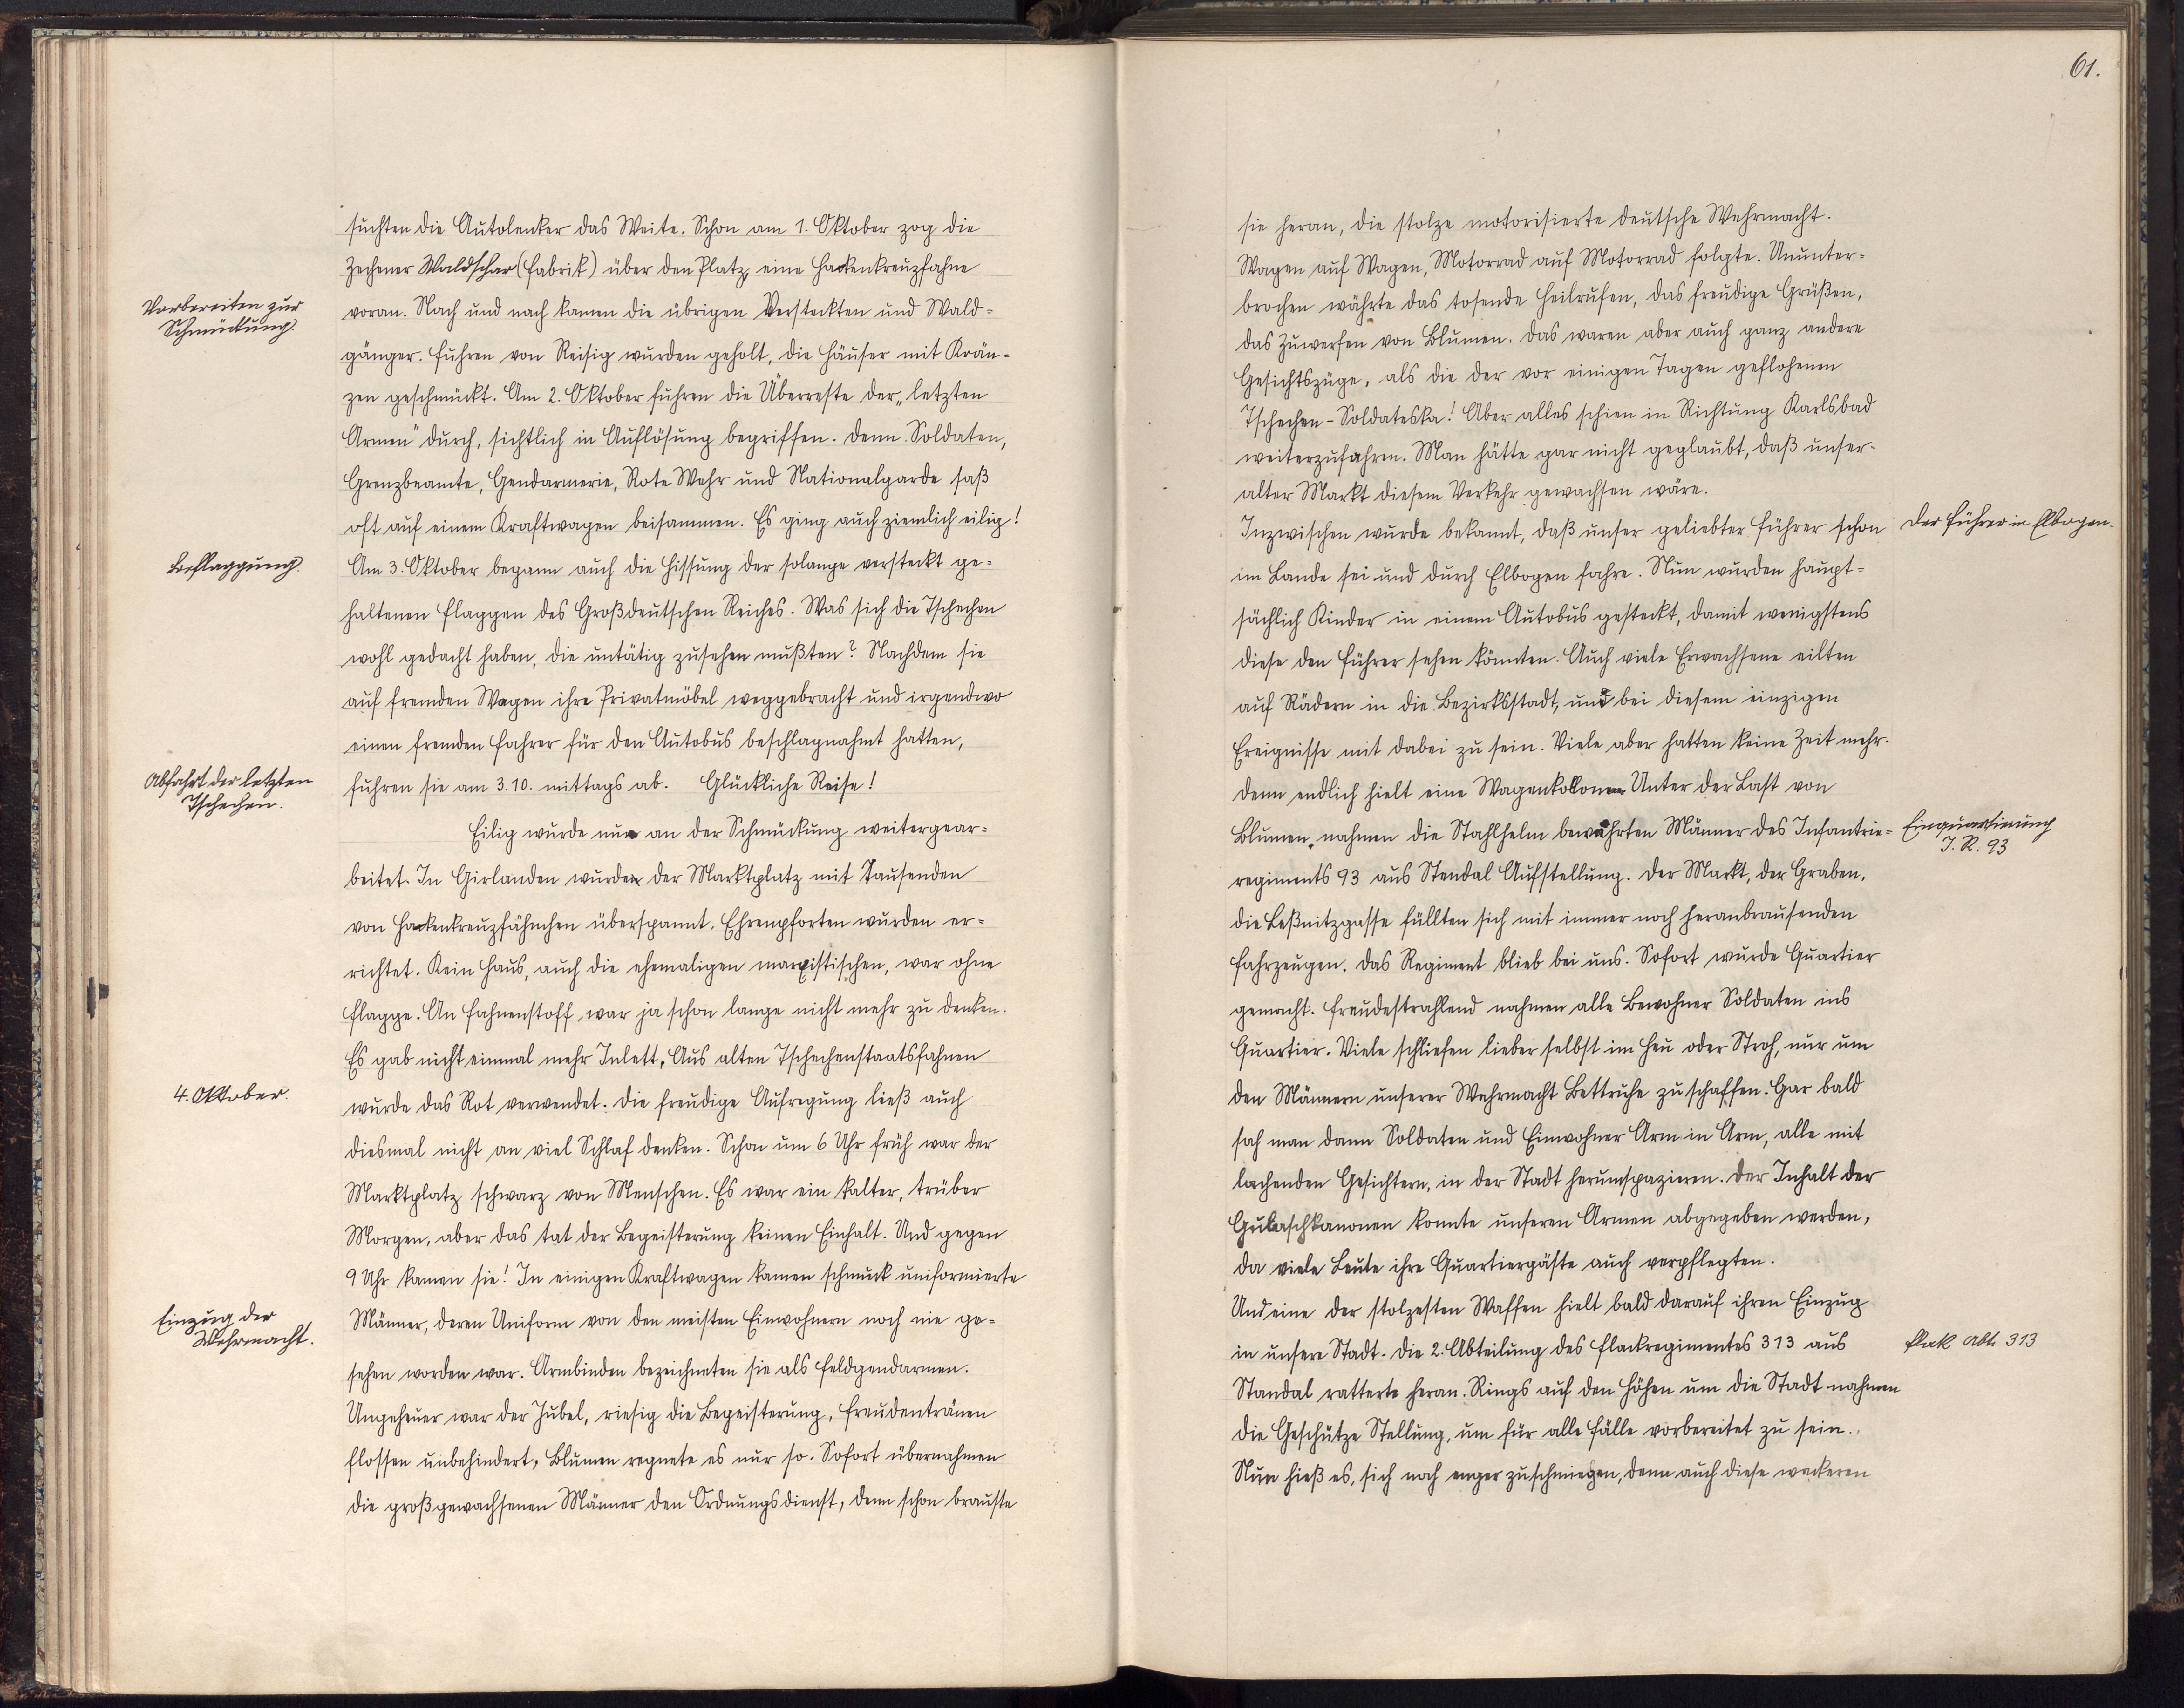 suchten die Autolenker das Weite. Schon am 1. Oktober zog die
Zechener Waldschar (Fabrik) über den Platz, eine Hackenkreuzfahne
Vorbereiten zur
Schmückung.
voran. Nach und nach kamen die übrigen Versteckten und Wald-
gänger. Fuhren von Reisig wurden geholt, die Häuser mit Krän-
zen geschmückt. Am 2. Oktober fuhren die Überreste der „letzten
Armen" durch, sichtlich in Auflösung begriffen. Denn Soldaten,
Grenzbeamte, Gendarmerie, Rote Wehr und Nationalgarde saß
oft auf einem Kraftwagen beisammen. Es ging auch ziemlich eilig!
Beflaggung.
Am 3. Oktober begann auch die Hissung der solange versteckt ge-
haltenen Flaggen des Großdeutschen Reiches. Was sich die Tschechen
wohl gedacht haben, die untätig zusehen mußten? Nachdem sie
auf fremden Wagen ihre Privatmöbel weggebracht und irgendwo
einen fremden Fahrer für den Autobus beschlagnahmt hatten,
Abfahrt der letzten
Tschechen.
fuhren sie am 3.10. mittags ab. Glückliche Reise!
Eilig wurde nun an der Schmückung weitergear-
beitet. In Girlanden wurden der Marktplatz mit Tausenden
von Hackenkreuzfähnchen überspannt. Ehrenpforten wurden er-
richtet. Kein Haus, auch die ehemaligen marxistischen, war ohne
Flagge. An Fahnenstoff war ja schon lange nicht mehr zu denken.
Es gab nicht einmal mehr Inlett. Aus alten Tschechenstaatsfahnen
4. Oktober.
wurde das Rot verwendet. Die freudige Aufregung ließ auch
diesmal nicht an viel Schlaf denken. Schon um 6 Uhr früh war der
Marktplatz schwarz von Menschen. Es war ein kalter, trüber
Morgen, aber das tat der Begeisterung keinen Einhalt. Und gegen
9 Uhr kamen sie! In einigen Kraftwagen kamen schmuck uniformierte
Einzug der
Wehrmacht.
Männer, deren Uniform von den meisten Einwohnern noch nie ge-
sehen worden war. Armbinden bezeichneten sie als Feldgendarmen.
Ungeheuer war der Jubel, riesig die Begeisterung, Freudentränen
flossen unbehindert, Blumen regnete es nur so. Sofort übernahmen
die großgewachsenen Männer den Ordnungsdienst, denn schon brauste
61.
sie heran, die stolze motorisierte deutsche Wehrmacht.
Wagen auf Wagen, Motorrad auf Motorrad folgte. Ununter-
brochen währte das tosende Heilrufen, das freudige Grüßen,
das Zuwerfen von Blumen. Das waren aber auch ganz andere
Gesichtszüge, als die der vor einigen Tagen geflohenen
Tschechen-Soldateska! Aber alles schien in Richtung Karlsbad
weiterzufahren. Man hätte gar nicht geglaubt, daß unser
alter Markt diesem Verkehr gewachsen wäre.
Inzwischen wurde bekannt, daß unser geliebter Führer schon
Der Führer in Elbogen.
im Lande sei und durch Elbogen fahre. Nun wurden haupt-
sächlich Kinder in einem Autobus gesteckt, damit wenigstens
diese den Führer sehen könnten. Auch viele Erwachsene eilten
auf Rädern in die Bezirksstadt, und bei diesem einzigen
Ereignisse mit dabei zu sein. Viele aber hatten keine Zeit mehr.
Denn endlich hielt eine Wagenkollonne. Unter der Last von
Blumen nahmen die Stahlhelm bewährten Männer des Infantrie-
Einquartierung
I. R. 93
regiments 93 aus Stendal Aufstellung. Der Markt, der Graben,
die Leßnitzgasse füllten sich mit immer noch heranbrausenden
Fahrzeugen. Das Regiment blieb bei uns. Sofort wurde Quartier
gemacht. Freudestrahlend nahmen alle Bewohner Soldaten ins
Quartier. Viele schliefen lieber selbst im Heu oder Stroh, nur um
den Männern unserer Wehrmacht Bettruhe zu schaffen. Gar bald
sah man dann Soldaten und Einwohner Arm in Arm, alle mit
lachenden Gesichtern, in der Stadt herumspazieren. Der Inhalt der
Gulaschkanonen konnte unseren Armen abgegeben werden,
da viele Leute ihre Quartiergäste auch verpflegten.
Und eine der stolzesten Waffen hielt bald darauf ihren Einzug
in unsere Stadt. Die 2. Abteilung des Flackregimentes 313 aus
Flak Abt. 313
Standal ratterte heran. Rings auf den Höhen um die Stadt nahmen
die Geschütze Stellung, um für alle Fälle vorbereitet zu sein.
Nun hieß es, sich noch enger zuschmiegen, denn auch diese wackeren